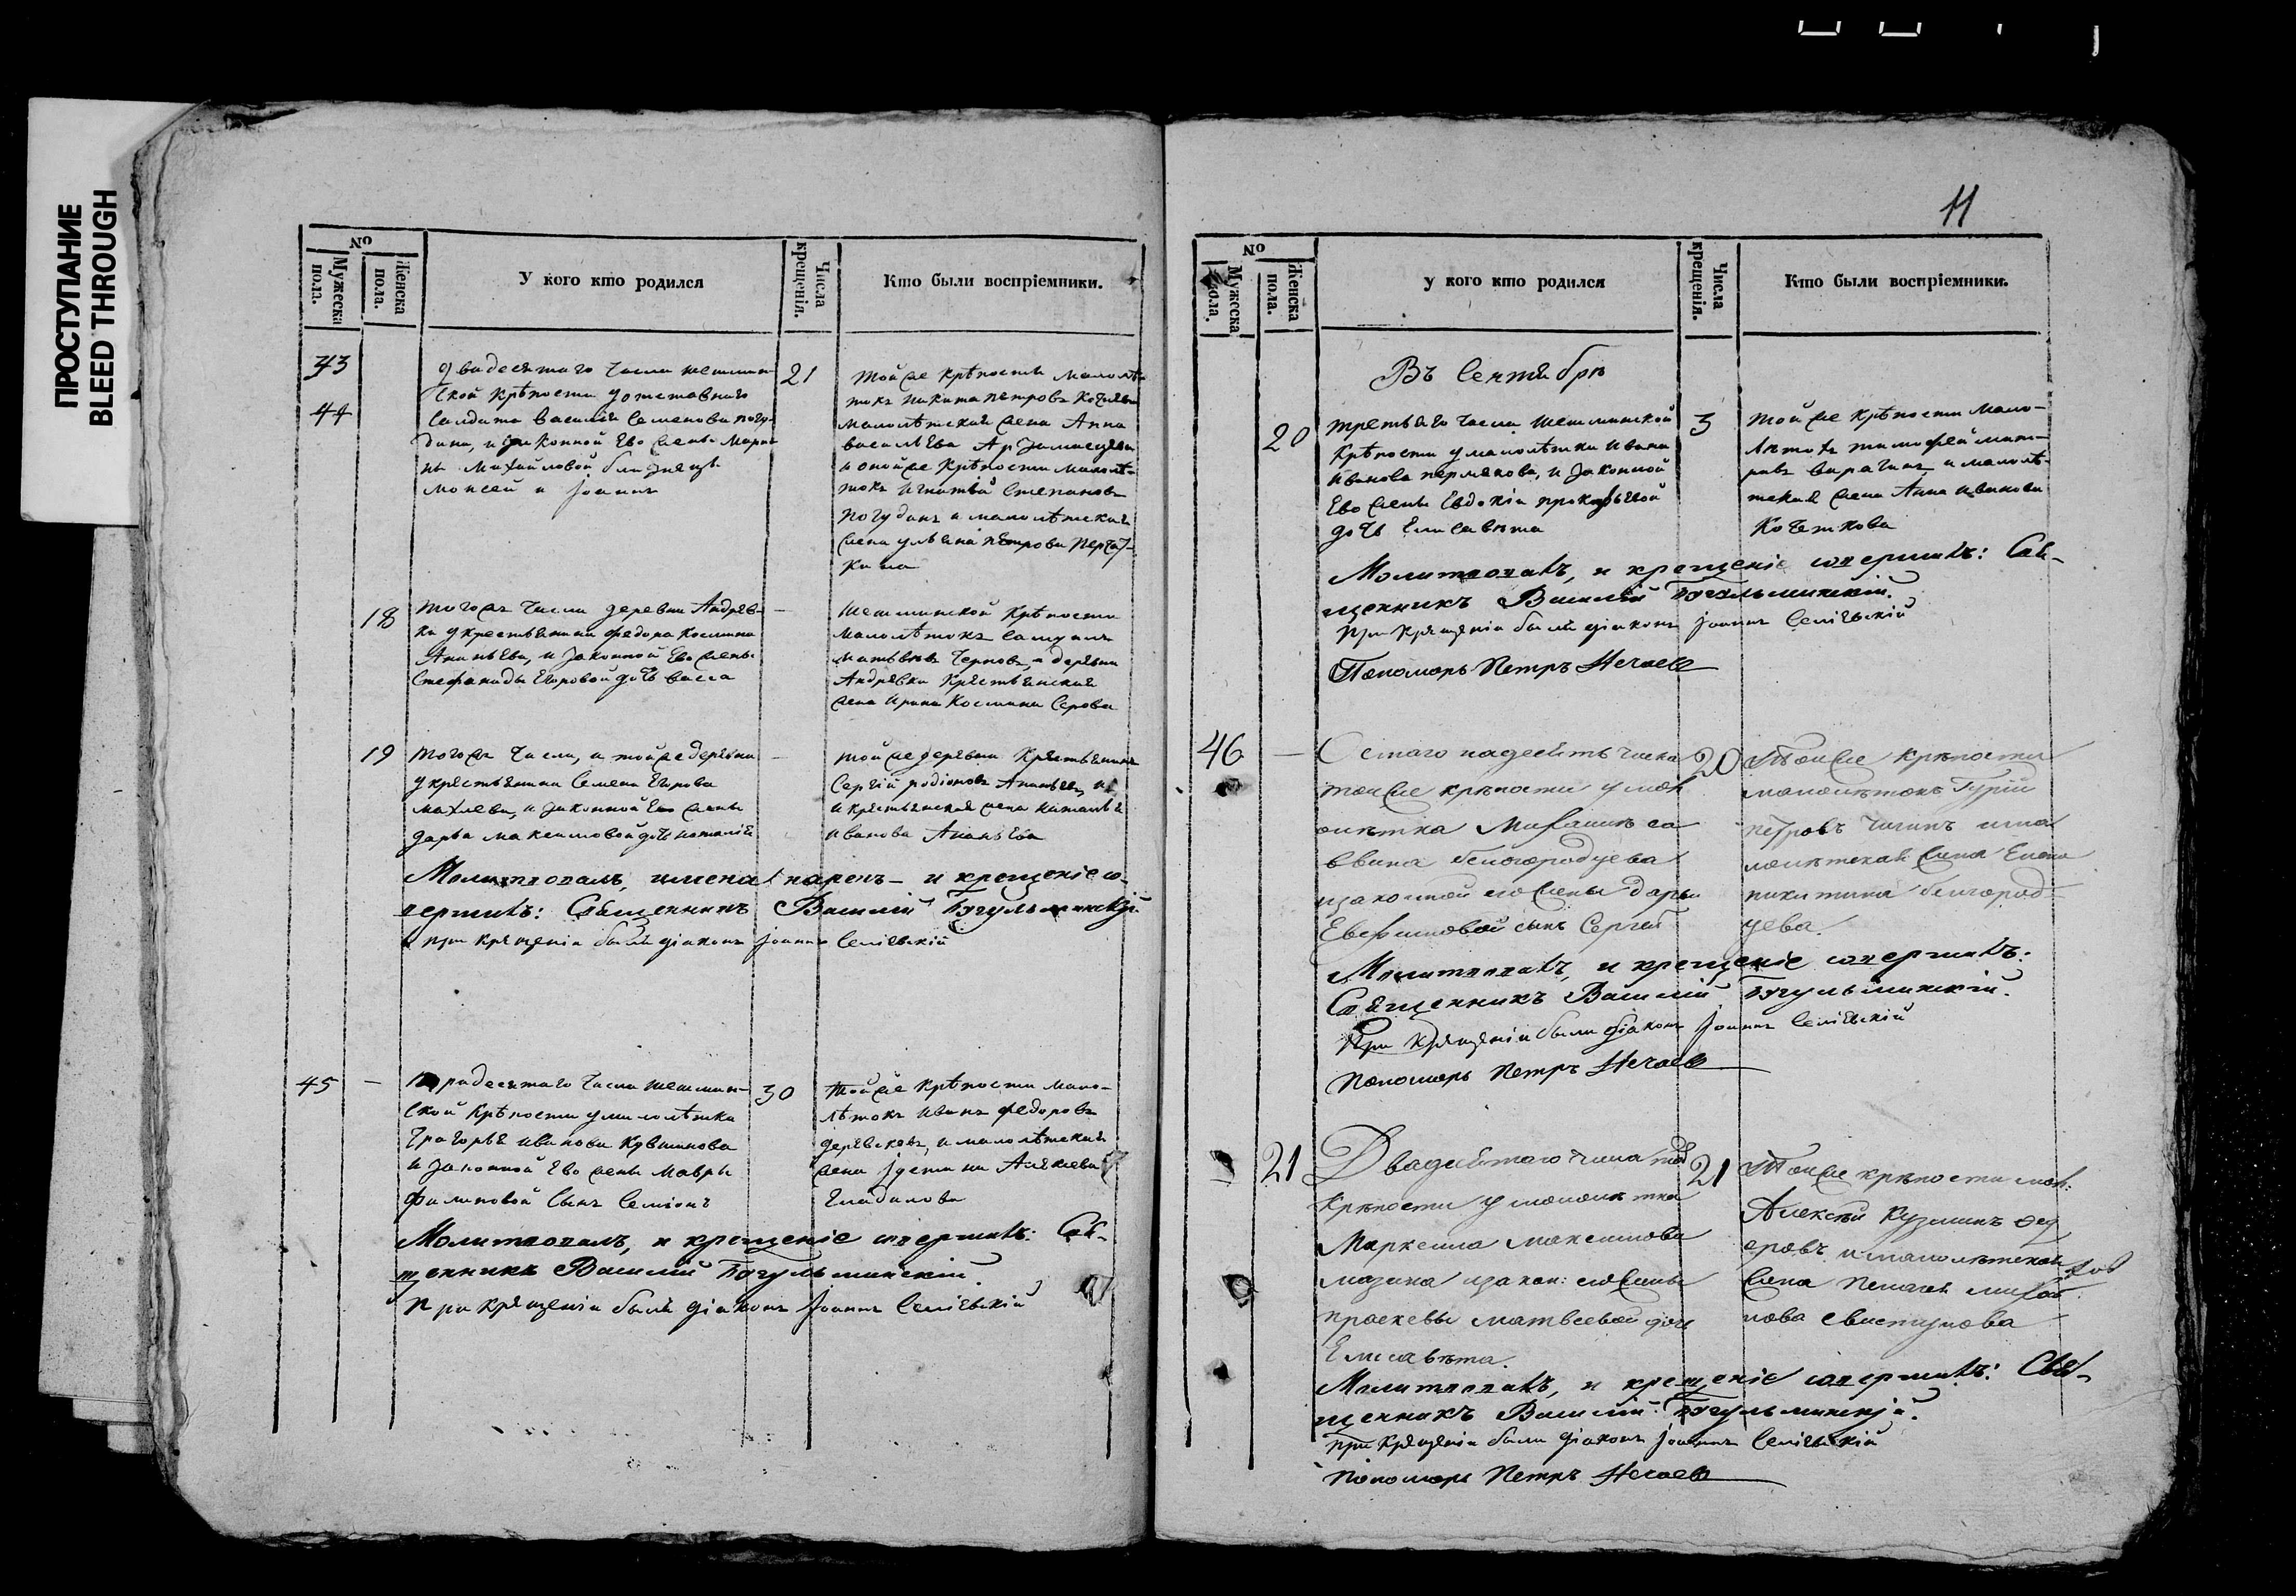 ПРОСТУПАНИЕ
BLEED THROUGH
№
Мужеска пола.
Женска пола.
У кого кто родился
Числа крещенія.
Кто были воспріемники.
43
44
двадесятаго числа шешмин-
ской крѣпости у отставнаго
салдата василія семенова погу-
дина, и законной Ево жены Марѳы
Михайловой близнецы
Моисей и Іоаннъ
21
тойже крѣпости малолѣ-
токъ никита петровъ
малолѣтская жена Анна
васильева Арзамасцева
и оной же крѣпости малолѣ-
токъ игнатій степановъ
погудинъ и малолѣтская
жена ульяна петрова
18
тогожъ числа деревни Андреев-
ки у крестьянина федора космина
Ананьева, и законной Ево жены
Стефаниды Егоровой дочь васса
шешминской крѣпости
малолѣтокъ
матвѣевъ Черновъ, и деревни
Андревки крестьянская
жена ирина космина Серова
19
тогожъ числа, и тойже деревни
у крестьянина Семена Егорова
махлева, и законной Ево жены
дарьи максимовой дочь наталія
тойже деревни крестьянинъ
Сергій родіоновъ Ананьевъ,
и крестьянская жена наталья
иванова Ананьева
Молитвовалъ, имена нареч- и крещеніе со-
вершилъ: Священникъ Василій Бугульминскій.
при крещеніи былъ діаконъ Іоаннъ Селіевскій
45
тридесятаго числа шешмин-
ской крѣпости у малолѣтка
Григорья иванова Кувшинова
и законной Ево жены Мавры
филиповой сынъ Семіонъ
30
тойже крѣпости мало-
лѣтокъ иванъ федоровъ
деревсковъ, и малолѣтская
жена Іустина Алексеева
Молитвовалъ, и крещеніе совершилъ: Свя-
щенникъ Василій Бугульминскій.
при крещеніи былъ діаконъ Іоаннъ Селіевскій
11
№
Мужеска пола.
Женска пола.
у кого кто родился
Числа крещенія.
Кто были воспріемники.
Въ Сентябрѣ
20
третьяго числа шешминской
крѣпости у малолѣтка ивана
иванова пермякова, и законной
Ево жены Евдокіи прокофьевой
дочь Елисавета
3
тойже крѣпости мало-
лѣтокъ тимофей
и малолѣ-
тская жена Анна иванова
Кочеткова
Молитвовалъ, и крещеніе совершилъ: Свя-
щенникъ Василій Бугульминскій.
при крещеніи былъ діаконъ Іоаннъ Селіевскій
Пономарь Петръ Нечаевъ
46
Осмаго надесять числа
тойже крѣпости у мал
олѣтка
ввина белогородцева
и законной его жены дарьи
Евфимовой сынъ Сергей
20
Тойже крѣпости
малолѣтокъ Гурій
петровъ Чигинъ и ма
лолѣтская жена Елена
никитина белгород-
цева.
Молитвовалъ, и крещеніе совершилъ:
Священникъ Василій Бугульминскій.
При крещеніи были діаконъ Іоаннъ Селіевскій
пономарь Петръ Нечаевъ
21
Двадесятаго числа той
крѣпости у малолѣтка
Маркелла максимова
мазина и закон: его жены
праскевы матвеевой дочь
Елисавѣта.
21
Тойже крѣпости мал:
Алексѣй Кузминъ Фед
оровъ и малолѣтская
жена пелагея михай
лова свистунова
Молитвовалъ, и крещеніе совершилъ: Свя-
щенникъ Василій Бугульминскій.
при крещеніи были діаконъ Іоаннъ Селіевскій
пономарь Петръ Нечаевъ